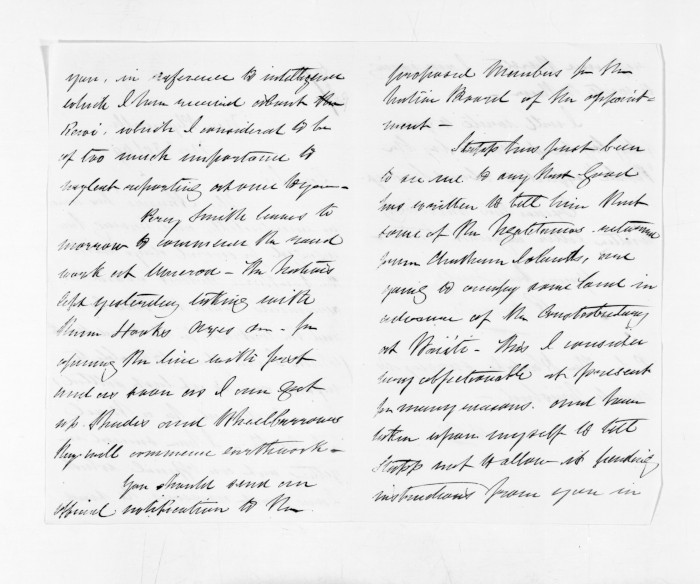 you, in reference to intelligence
which I have received about the
Rewi, which I considered to be
of too much importance to
neglect reporting at once to you —
Percy Smith leaves to
morrow to commence the road
work at Umeroa — The Natives
left yesterday taking with
them Hooks Axes &c — for
opening the line with first
and as soon as I can get
up Spades and Wheelbarrows
they will commence earthwork —
You should send an
official notification to the
proposed Members for the
Native Board of the appoint-
ment —
Stapp has just been
to see me to say that Good
has written to tell him that
some of the Ngatitamas returned
from Chatham Islands, are
going to occupy some land in
advance of the Constabulary
at Waiiti — this I consider
very objectionable at present
for many reasons. and have
taken upon myself to tell
Stapp not to allow it pending
instructions from you in